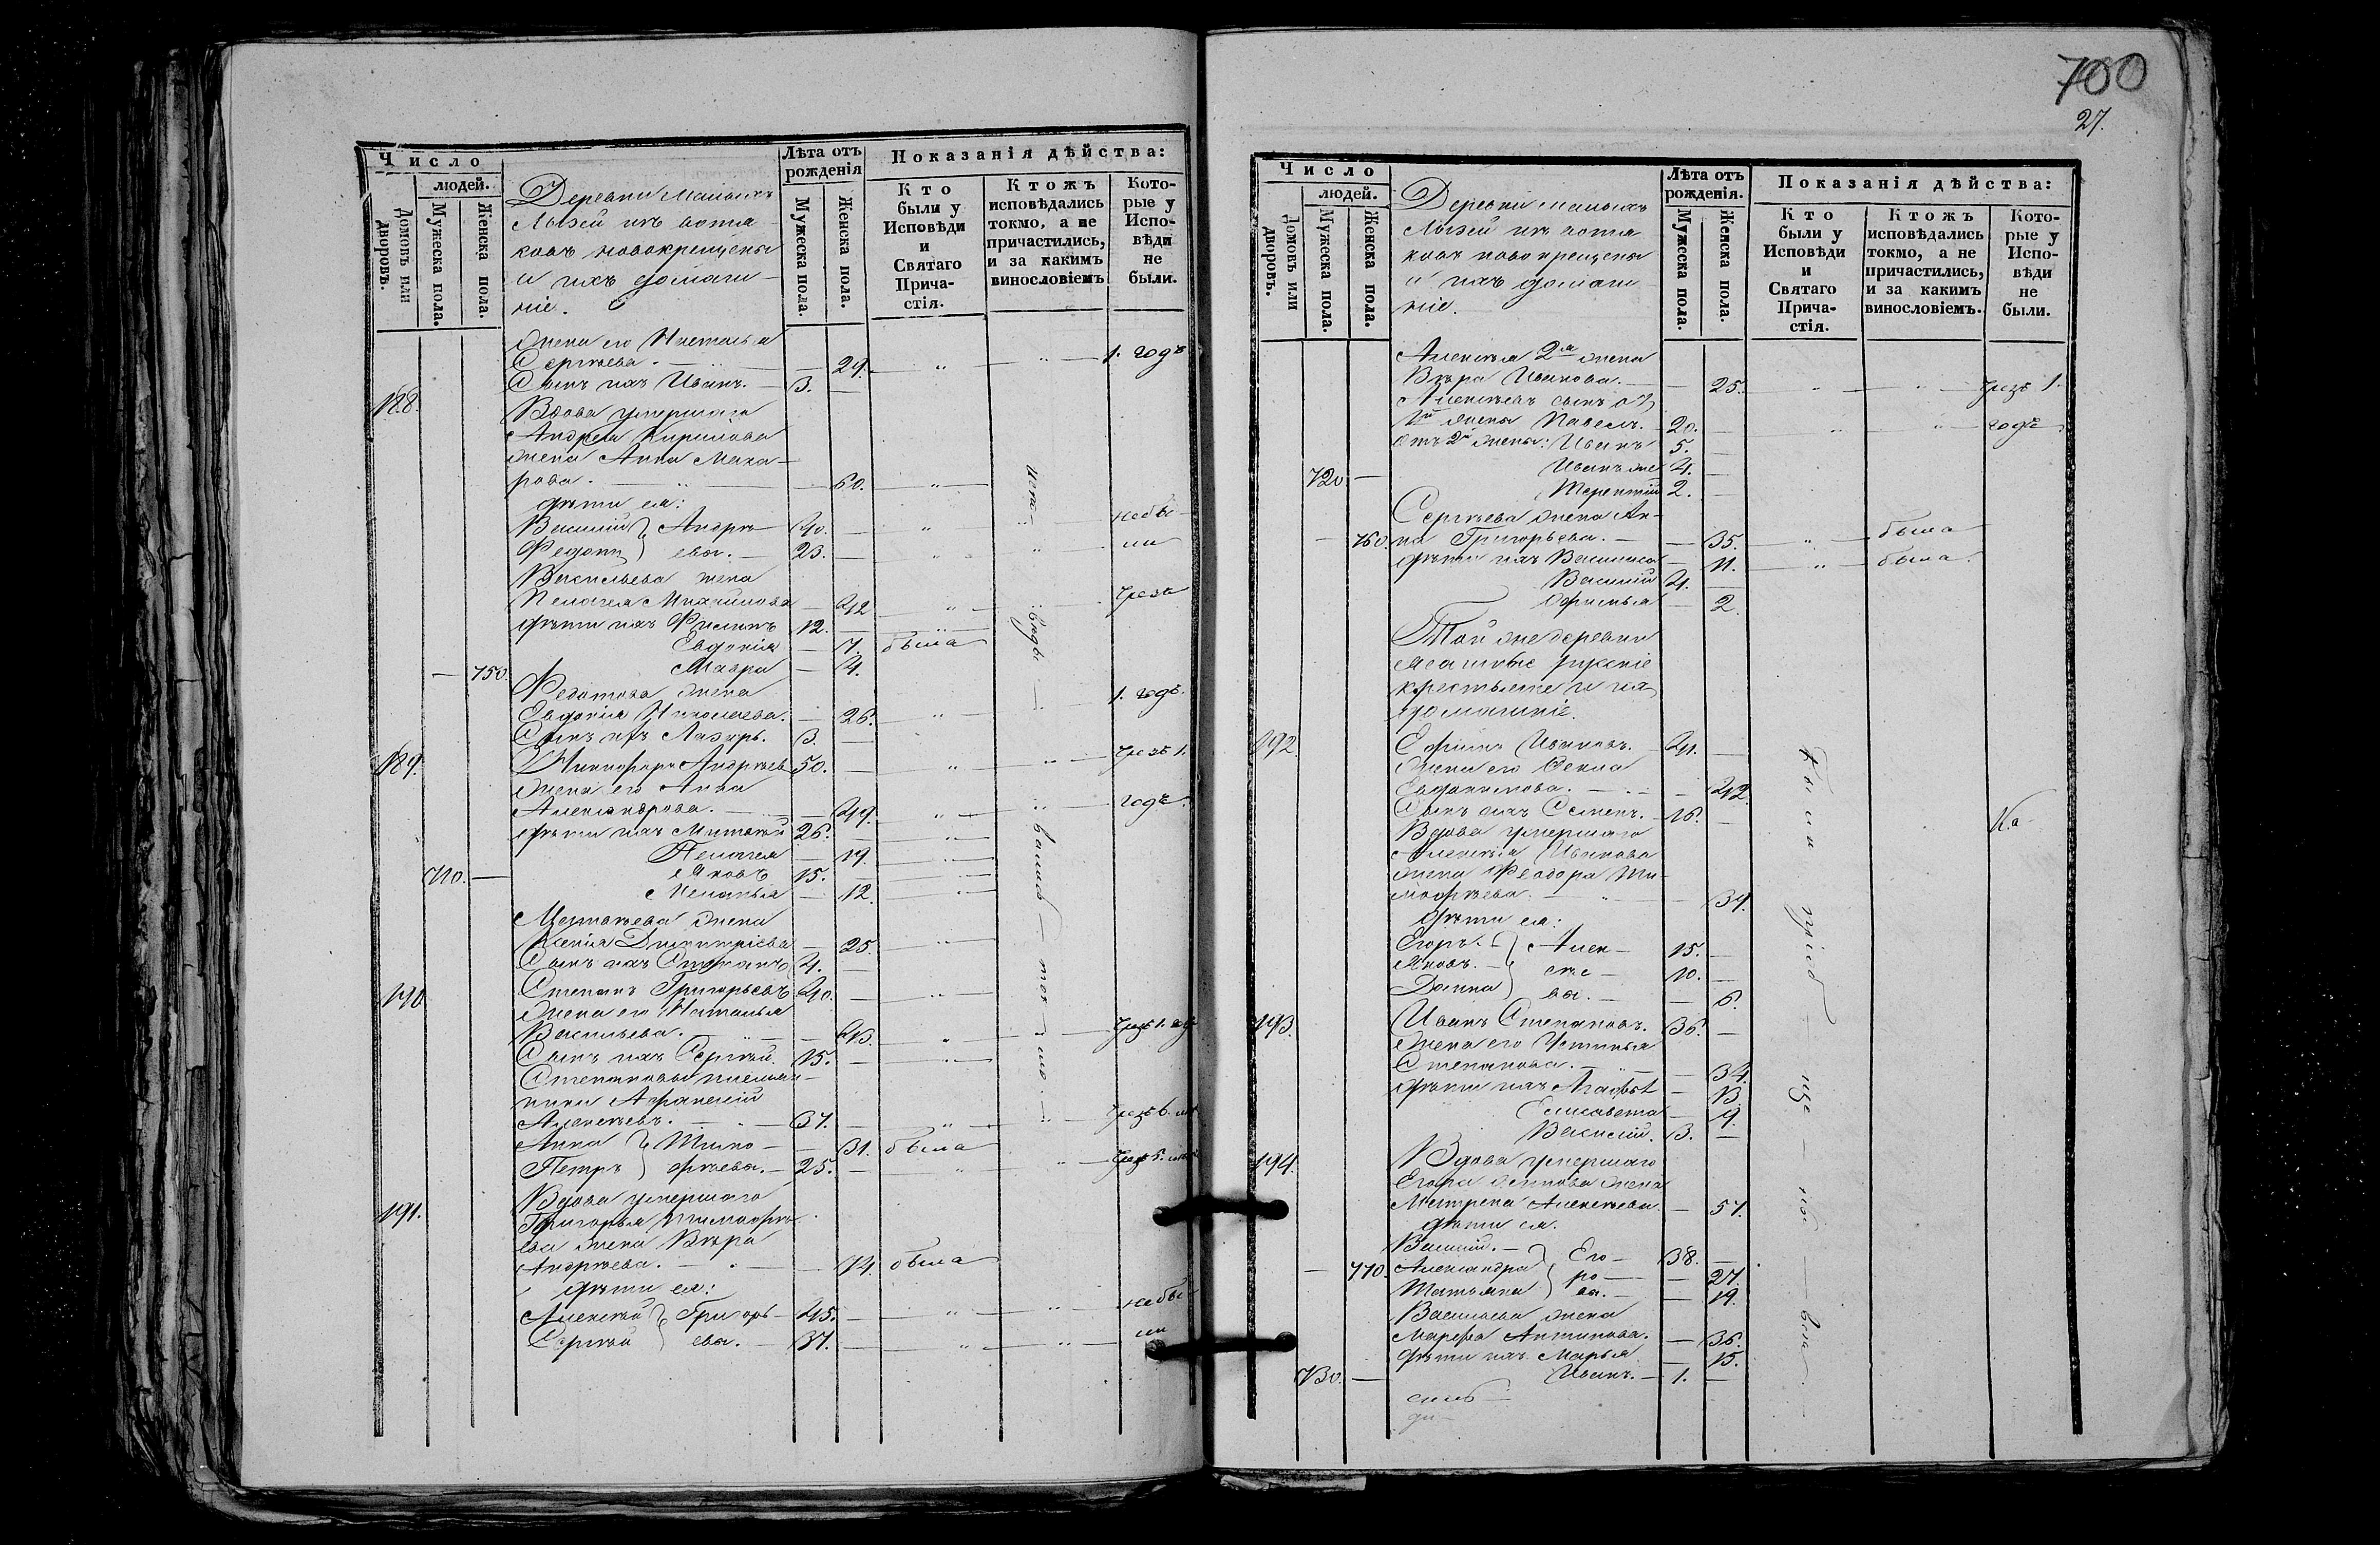 Число
людей.
Домовъ или дворовъ.
Мужеска пола.
Женска пола.
Деревни Малыхъ
Лызей изъ вотя
ковъ новокрещены
и ихъ домаш
ніе.
Лѣта отъ рожденія
Мужеска пола.
Женска пола.
Показанія дѣйства:
Кто были у Исповѣди и Святаго Причастія.
Ктожъ исповѣдались токмо, а не причастились, и за какимъ винословіемъ
Которые у Исповѣди не были.
Жена его Наталья
Сергѣева. — 29. „ — „ — 1. годъ
Сынъ ихъ Иванъ. — 3. —
188. Вдова умершаго
Андрея Кирилова
жена Анна Мака-
рова. — 60. „
дѣти ея:
Василий } Андрѣ — 40. — „ небы-
Федотъ } евы. — 23. — „ „ ли
Васильева жена
Пелагея — 42 „ чрезъ
дѣти ихъ Филипъ 12. —
Евдокія — 7. была
750. Мавра — 4.
Федотова жена 1. годъ.
Евдокія Николаева. — 26. „
Сынъ ихъ Лазарь. 3. —
189. Никифоръ Андрѣевъ 50. — „ „ чрезъ 1.
Жена его Анна
Александрова. — 49. „ годъ.
дѣти ихъ 26. „
Пелагея — 19. „
710. — Яковъ 15. — „
Меланья — 12. „
жена
Ксенія Димитріева — 25. „
Сынъ ихъ Степанъ 4. —
190 Степанъ Григорьевъ 40. — „
Жена его Наталья
Васильева. — 43. „ чрезъ 1. годъ
Сынъ ихъ Сергѣй. 15. — „
Степановы племян-
ники Афанасій
Алексѣевъ. — 37. — „ чрезъ 6. лѣтъ
Анна } Тимо — — 31. была
Петръ } фѣевы. — 25. — „ „ чрезъ 5. лѣтъ
191. Вдова умершаго
Григорья Тимофѣ-
ева жена Вѣра
Андрѣева. — 74. была
дѣти ея:
Алексѣй } Григорь — 45. — „ „ небы
Сергѣй } евы. — 37. — „ „ ли
700
27.
Число
людей.
Домовъ или дворовъ.
Мужеска пола.
Женска пола.
Деревни малыхъ
Лызей изъ вотя
ковъ новокрещены
и ихъ домаш
ніе.
Лѣта отъ рожденія.
Мужеска пола.
Женска пола.
Показанія дѣйства:
Кто были у Исповѣди и Святаго Причастія.
Ктожъ исповѣдались токмо, а не причастились, и за какимъ винословіемъ.
Которые у Исповѣди не были.
Алексѣя 2я жена
Вѣра Иванова. — 25. „ — „ — чрезъ 1.
Алексѣевъ сынъ отъ
1й жены Павелъ. 20. — „ „ годъ
Отъ 2й жены: Иванъ 5. —
Иванъ же 4. —
720 — Терентій 2. —
Сергѣева жена Ан-
760. на Григорьева. — 35. „ — была
дѣти ихъ Василиса — 11. „ — была.
Василій 4. —
Офимья — 2.
Той же деревни
русскіе
крестьяне и ихъ
домашніе.
192 Ефимъ Ивановъ. 41. —
Жена его Фекла
Евдокимова. — 42.
Сынъ ихъ Семенъ. 16. —
Вдова умершаго
Алексѣя Иванова
жена Феодора Ти-
мофѣева. — 39.
дѣти ея:
Егоръ. } Алек — 15. —
Яковъ. } сѣе — 10. —
Домна } вы. — — 6.
193. Иванъ Степановъ. 36. —
Жена его Устинья
Степанова. — 34.
дѣти ихъ — 13.
Елисавета — 9.
Василій. 3. —
194. Вдова умершаго
Егора жена
Матрена Алексѣева. — 57.
дѣти ея.
Василій. } Его — 38. —
770. Александра } ро — — 27.
Татьяна } вы. — — 19.
Васильева жена
Марфа Антипова. — 36.
дѣти ихъ Марья — 15.
730. — Иванъ. — 1. —